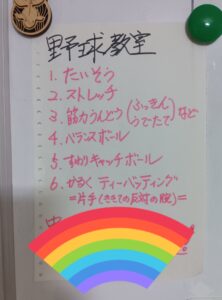 野球教室
1. たいそう
2. ストレッチ
3. 筋力うんどう(ふっきん うでたて)など
4. バランスボール
5. すわりキャッチボール
6. かるく ティーバッティング
=片手(ききての反対の腕)=